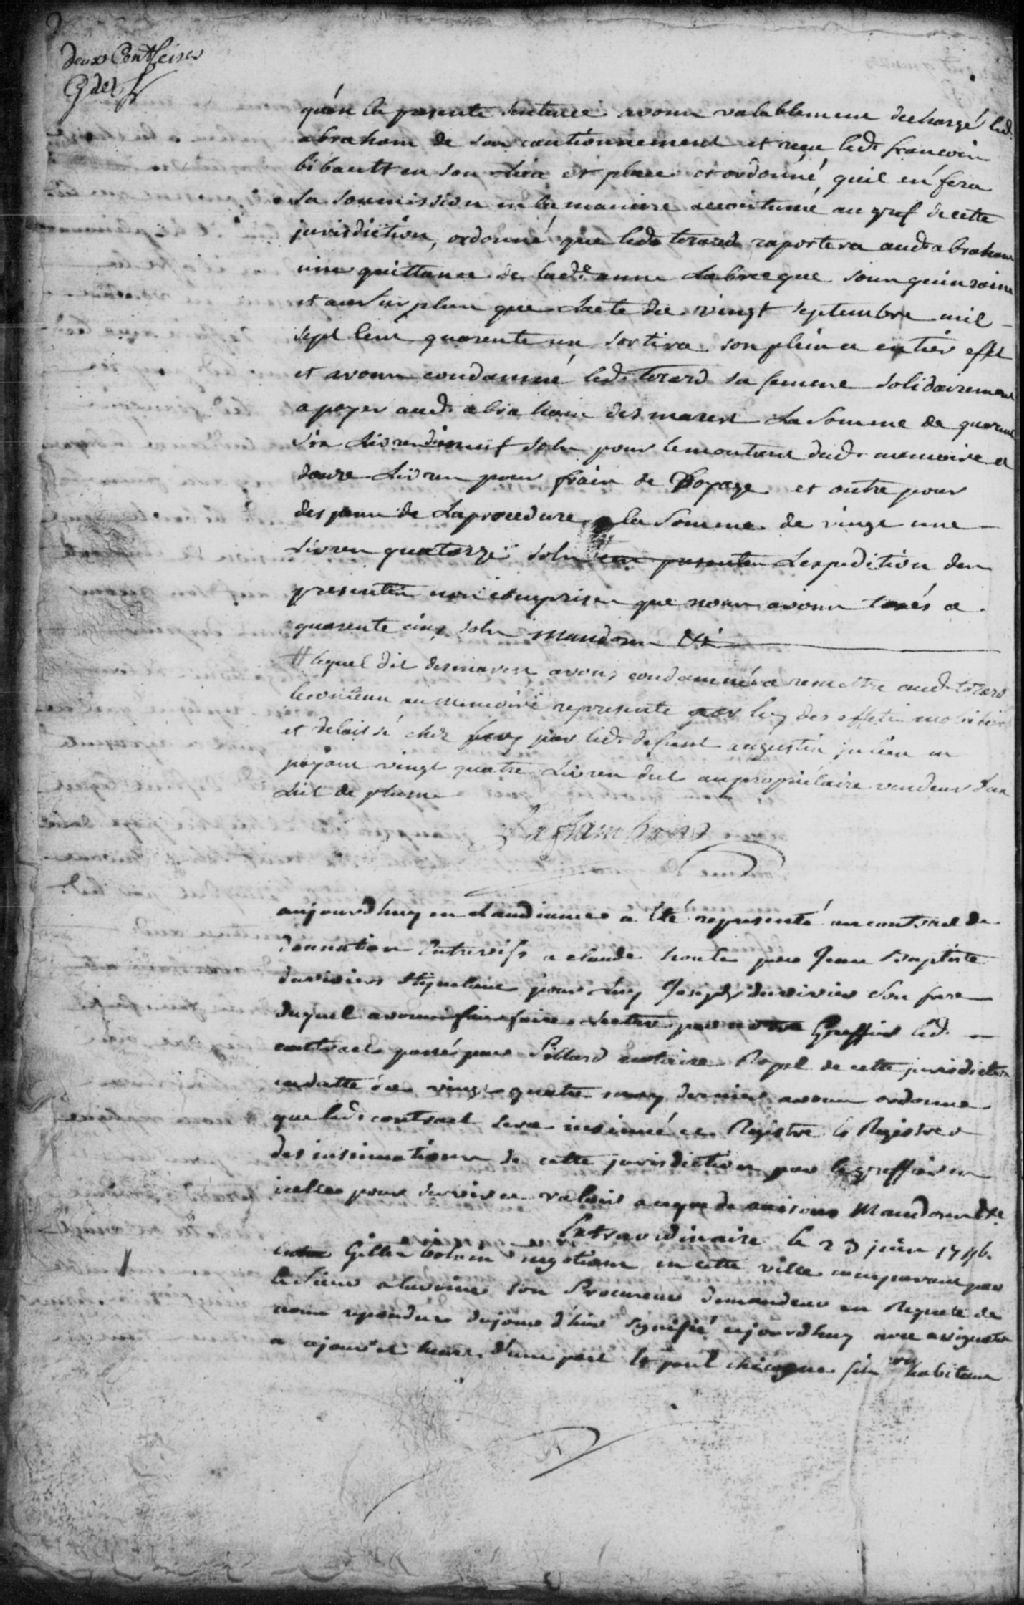 deux Cent seize
quen la presente sentence avons valablement dechargé led.
abraham de son cautionnement et reçu led. francois
bibault en son lieu et place et ordonné quil en fera
sa soumission en la maniere accoutumé au gref de cette
jurisdiction, ordonné que led. terard raportera aud. abraham
une quittance de lad. anne Labrecque sous quinzaine
et au surplus que                vingt septembre mil
sept Cent quarente un sortira son plein et entier effet
et avons condamné led. terard sa femme solidairement
a payer aud. abraham desmarest La somme de quarente
six Livres dixneuf sols pour le montant dud. memoire et
douze Livres pour frais de Voyage et outre pour
despens de La procedure la somme de vingt une
Livres quatorze sols Lexpedition des
presentes non comprise que nous avons taxés a
quarente cinq sols Mandons &c
lequel dit desmarest avons condamné a remettre aud. terard
le contenu au memoire representé des effets mobiliers
et delaissé chez luy par led. defunt augustin julien en
payant vingt quatre Livres dut au proprietaire vendeur d'un
Lit de plume
Lafl
aujourdhuy en Laudiance a été representé un contract de
donnation Entrevifs a claude houle par Jean Baptiste
duvivier stipulant pour luy Joseph duvivier son frere
duquel avons fait faire lecture par notre Greffier led.
contract passé par Pillard notaire Royal de cette jurisdiction
en datte du vingt quatre may dernier avons ordonné
que led. contract sera insinué et Registré es Registres
des insinuations de cette jurisdiction par le greffier en
icelle pour servir et valoir a ce que de raison Mandons &c
Extraordinaire le 23 juin 1746
entre Gilles bolvin negotiant en cette ville comparant par
le sieur son Procureur demandeur en Requete de
nous repondue du jour d'hier signifié aujourdhuy avec assignation
a ce jour et heure d'une part Et paul chicogne fils habitant